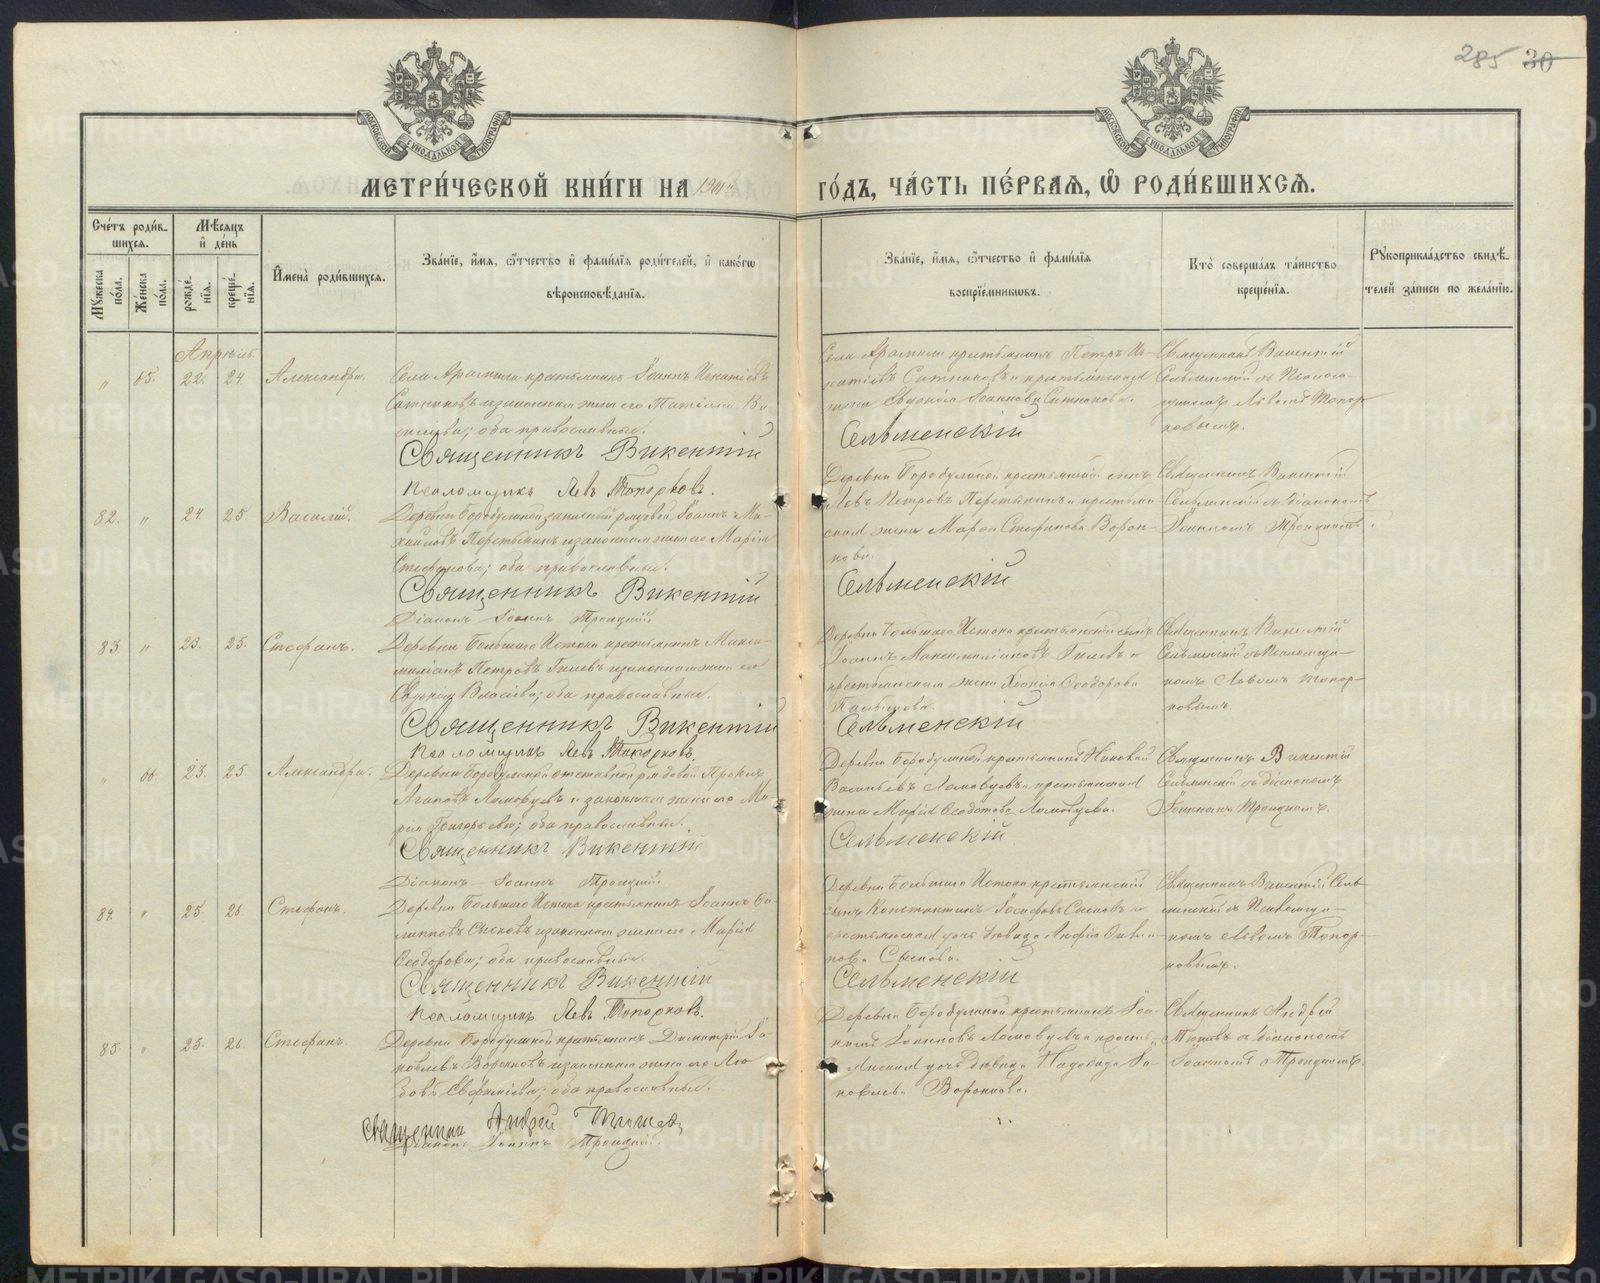 285 30
МЕТРИ́ЧЕСКОЙ КНИ́ГИ НА 1901й ГО́ДЪ, ЧА́СТЬ ПЕ́РВАЯ, Ѿ РОДИ́ВШИХСЯ.
Сче́тъ роди́вшихся.
Мужеска по́ла.
Же́нска по́ла.
Мѣ́сяцъ и де́нь
рожде́нїя.
креще́нїя.
Имена̀ роди́вшихся.
Зва́нїе, и́мя, ѻ҆́тчество и фами́лїя роди́телей, и како́гѡ вѣроисповѣ́данїя.
Зва́нїе, и́мя, ѻ҆́тчество и фами́лїя воспрїе́мникѡвъ.
Кто̀ соверша́лъ та́инство креще́нїя.
Рукоприкла́дство свидѣ́телей за́писи по жела́нїю.
Апрѣль
" 65. 22. 24. Александра.
Села Арамили крестьянинъ Іоаннъ Игнатіевъ
Ситниковъ и законная жена его Татіана Ва-
сильева; оба православные.
Священникъ Викентій Сельменскій
Псаломщикъ Левъ Топорковъ.
Села Арамили крестьянинъ Петръ Иг-
натіевъ Ситниковъ и крестьянская
жена Евдокія Іоаннова Ситникова.
Священникъ Викентій
Сельменскій съ Псалом-
щикомъ Львомъ Топор-
ковымъ.
82. " 24. 25. Василій.
Деревни Бородулиной запасный рядовой Іоаннъ Ми-
хайловъ и законная жена его Марія
Стефанова; оба православные.
Священникъ Викентій Сельменскій
Діаконъ Іоаннъ Троицкій
Деревни Бородулиной крестьянскій сынъ
Левъ Петровъ и крестьян-
ская жена Марѳа Стефанова Ворон-
кова.
Священникъ Викентій
Сельменскій съ діакономъ
Іоанномъ Троицкимъ.
83 " 23. 25. Стефанъ.
Деревни Большого Истока крестьянинъ Макси-
миліанъ Петровъ Гилевъ и законная жена его
Евдокія Власіева; оба православные.
Священникъ Викентій Сельменскій
Псаломщикъ Левъ Топорковъ.
Деревни Большого Истока крестьянскій сынъ
Іоаннъ Максимиліановъ Гилевъ и
крестьянская жена Хіонія Ѳеодорова
Священникъ Викентій
Сельменскій съ Псаломщи-
комъ Львомъ Топор-
ковымъ.
" 66 23. 25. Александра.
Деревни Бородулиной отставной рядовой
Агаповъ Ломовцевъ и законная жена его Ма-
рія Григорьева; оба православные.
Священникъ Викентій Сельменскій
Діаконъ Іоаннъ Троицкій
Деревни Бородулиной крестьянинъ
Васильевъ Ломовцевъ и крестьянская
жена Марія Ѳеодотова Ломовцева.
Священникъ Викентій
Сельменскій съ діакономъ
Іоанномъ Троицкимъ.
84. " 25. 26 Стефанъ.
Деревни Большого Истока крестьянинъ Іоаннъ Фи-
липповъ Сысковъ и законная жена его Марія
Ѳеодорова; оба православные.
Священникъ Викентій Сельменскій
Псаломщикъ Левъ Топорковъ.
Деревни Большого Истока крестьянскій
сынъ Константинъ Іосифовъ и
крестьянская дочь девица Анфія Филип-
пова Сыскова.
Священникъ Викентій Сель-
менскій съ Псаломщи-
комъ Львомъ Топор-
ковымъ.
85. " 25. 26. Стефанъ.
Деревни Бородулиной крестьянинъ Димитрій Іа-
ковлевъ Воронковъ и законная жена его Лю-
бовь Евфиміева; оба православные.
Священникъ Андрей Титовъ
Діаконъ Іоаннъ Троицкій.
Деревни Бородулиной крестьянинъ
Ломовцевъ и крестья-
нская дочь девица Надежда Іа-
ковлева Воронкова.
Священникъ Андрей
Титовъ съ діакономъ
Іоанномъ Троицкимъ.